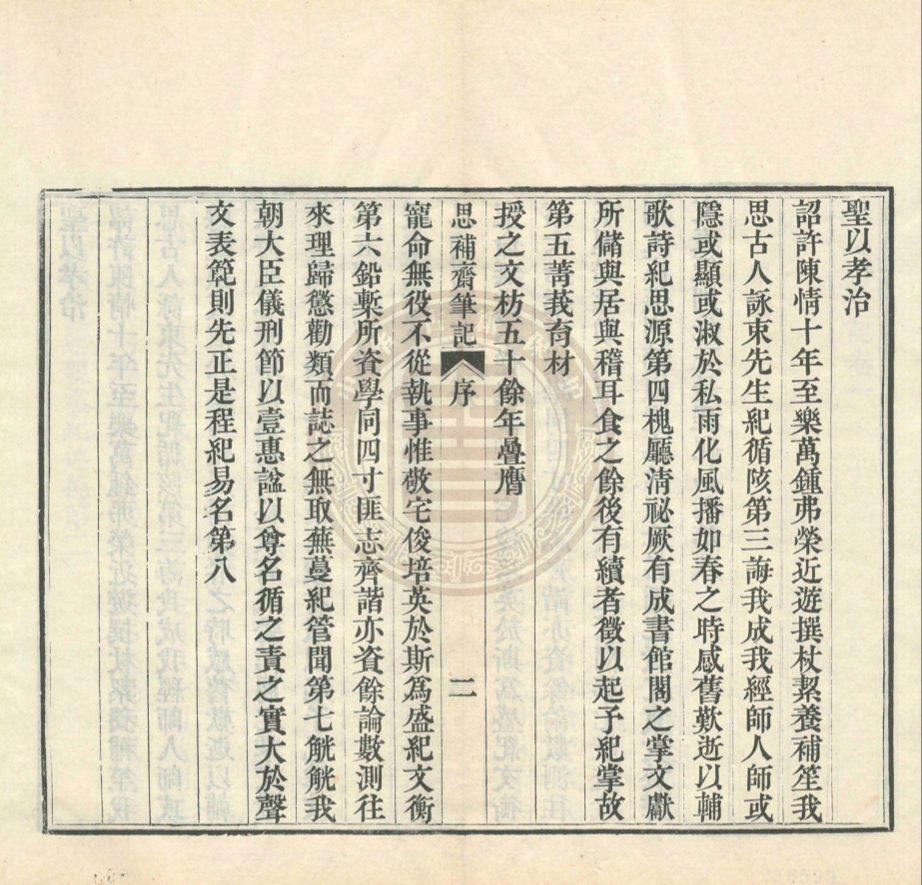 聖以孝治
詔許陳情十年至樂萬鍾弗榮近遊撰杖絜養補笙我
思古人詠束先生紀循陔第三誨我成我經師人師或
隱或顯或淑於私雨化風播如春之時感舊歎逝以輔
歌詩紀思源第四槐廳清祕厥有成書館閣之掌文獻
所儲與居與稽耳食之餘後有續者徵以起予紀掌故
第五菁莪育材
授之文枋五十餘年疊膺
思補齋筆記 序 二
寵命無役不從執事惟敬宅俊培英於斯爲盛紀文衡
第六鉛槧所資學同四寸匪志齊諧亦資餘論數測往
來理歸懲勸類而誌之無取蕪蔓紀管聞第七觥觥我
朝大臣儀刑節以壹惠諡以尊名循之責之實大於聲
文表範則先正是程紀易名第八